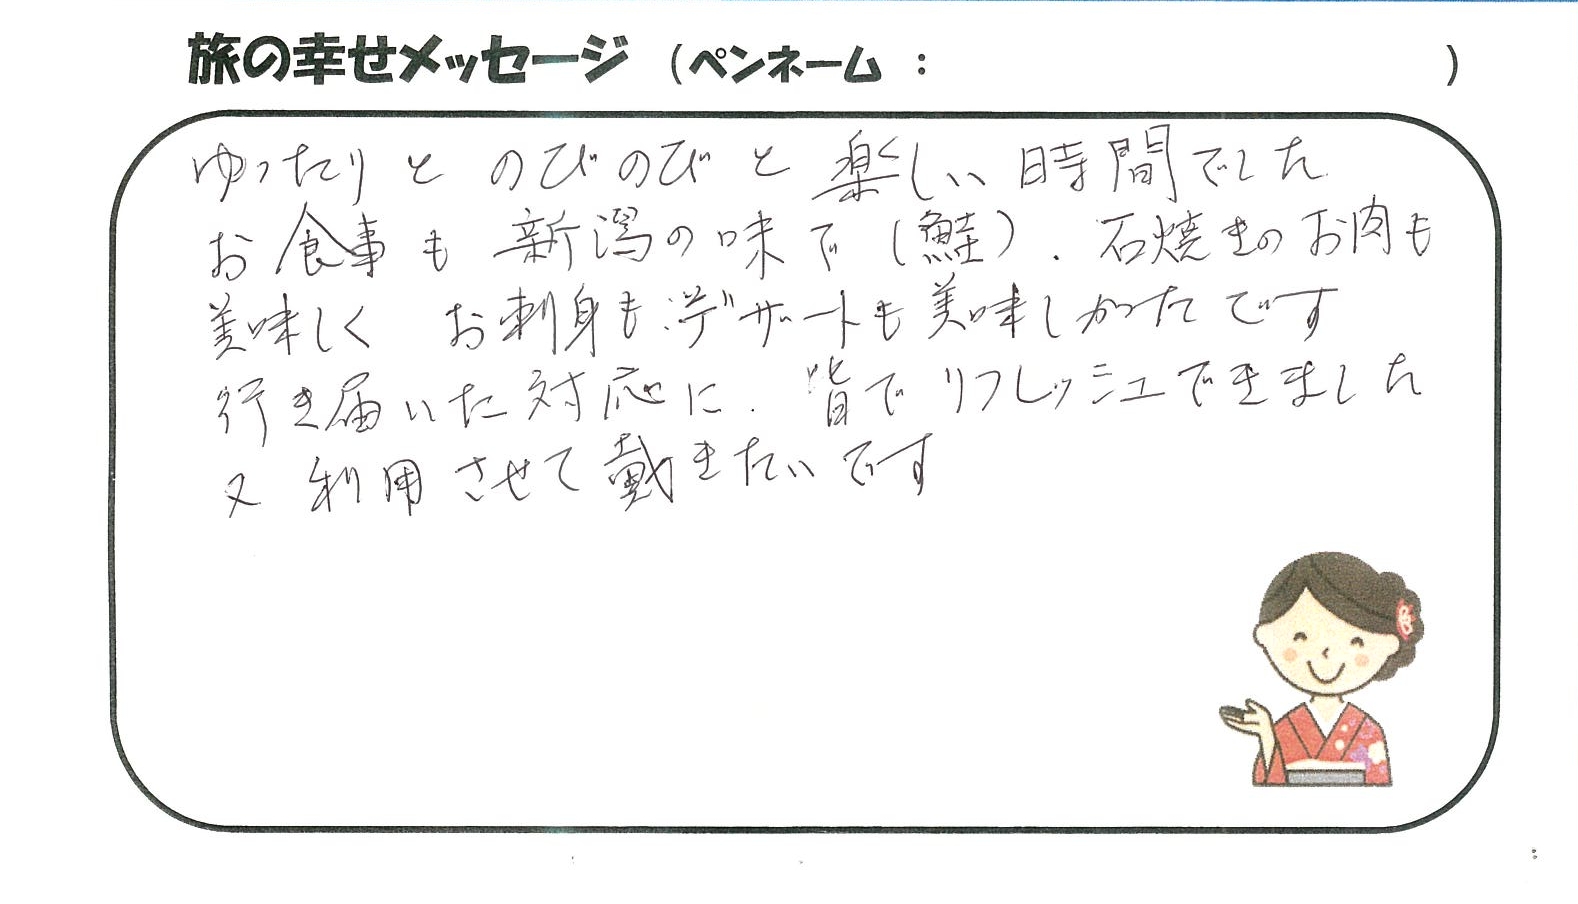 旅の幸せメッセージ (ペンネーム : )
ゆったりと のびのびと 楽しい時間でした
お食事も 新潟の味で (鮭) . 石焼きのお肉も
美味しく お刺身もデザートも美味しかったです
行き届いた対応に. 皆でリフレッシュできました
又 利用させて戴きたいです